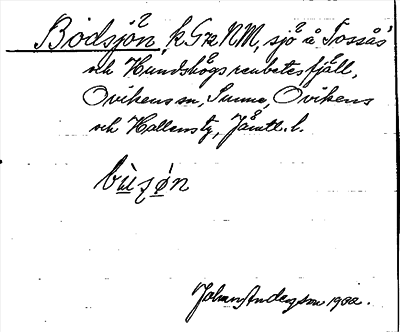 Bodsjön, k G72 NM, sjö å Tossås
och Hundshögs renbetesfjäll,
Ovikens sn, Sunne, Ovikens
och Hallens tg, Jämtl. l.
bùʒøn
Johan Anderson 1902.